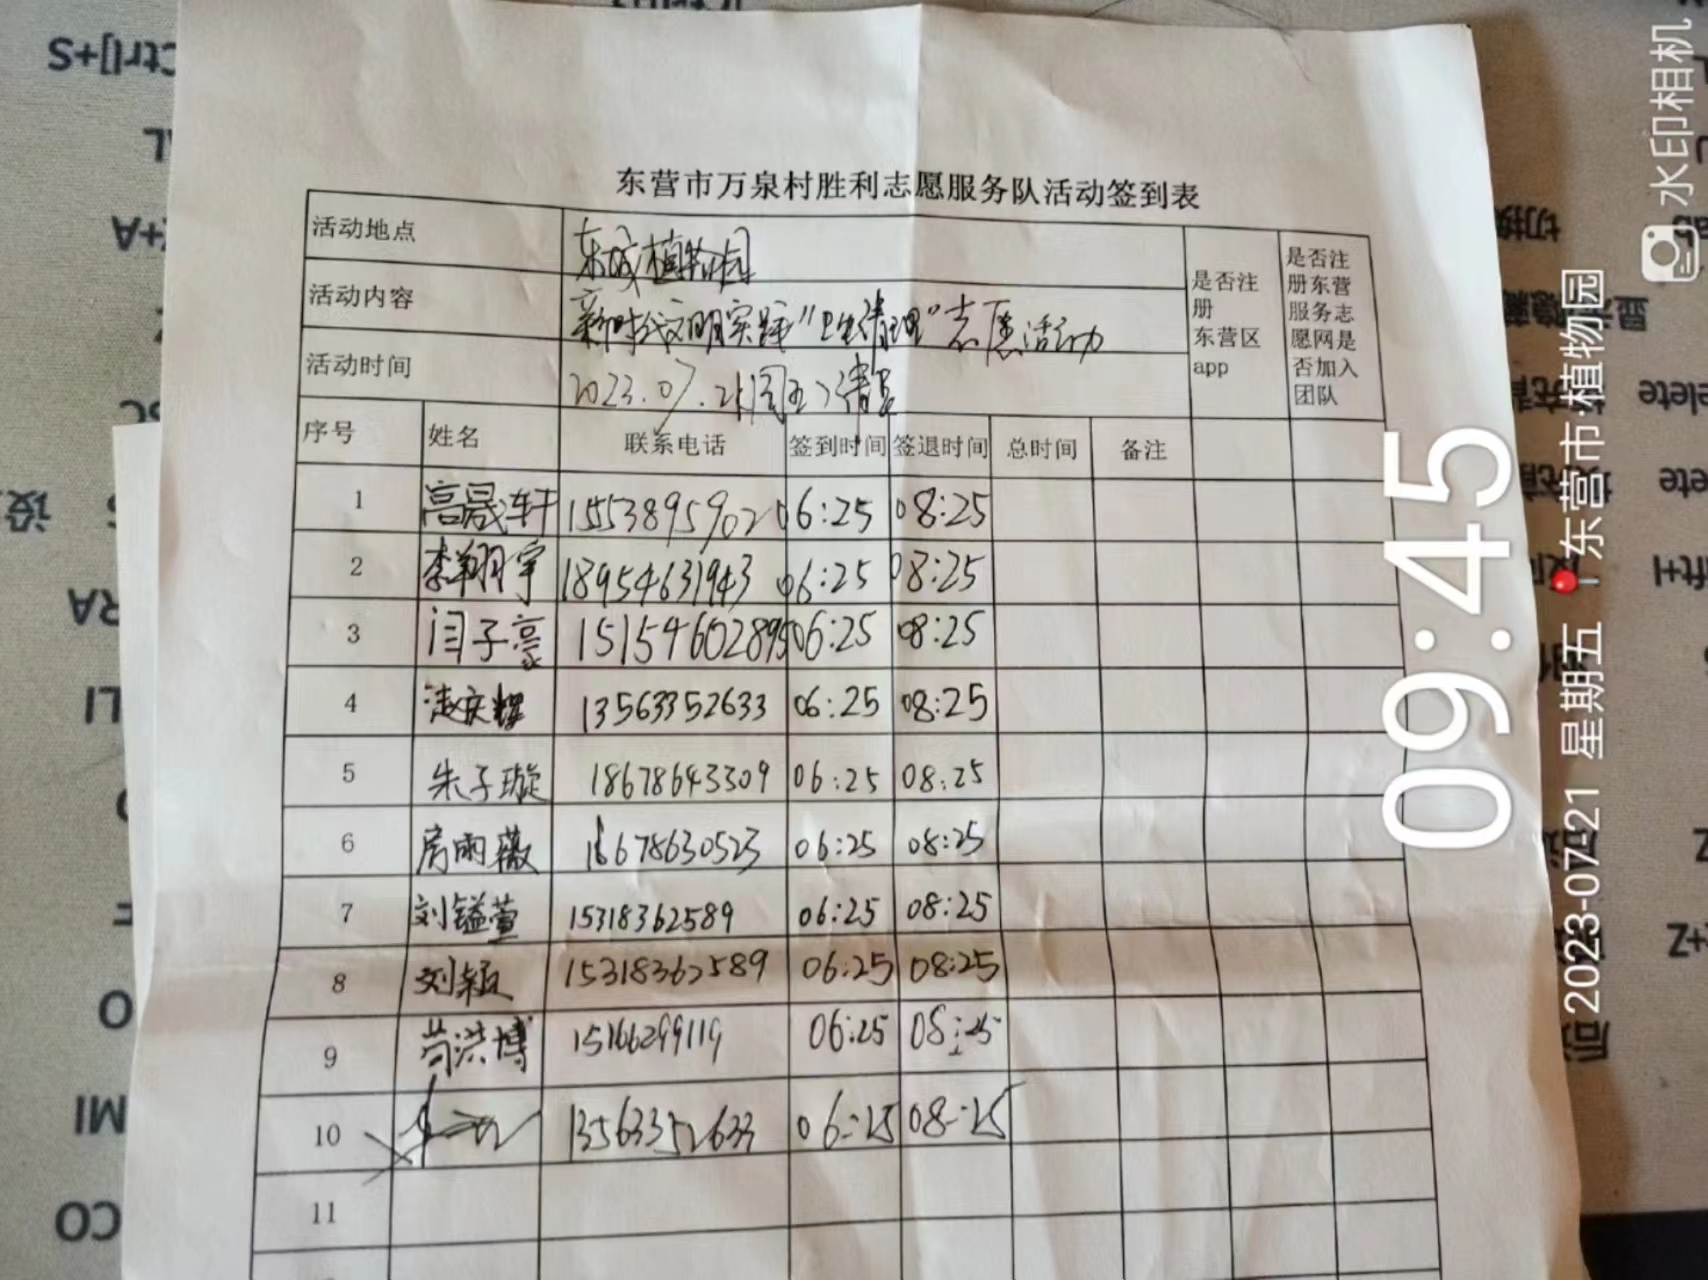 东营市万泉村胜利志愿服务队活动签到表
活动地点 东城植物园
活动内容 新时代文明实践"卫生清理"志愿活动
活动时间 2023.07.21周五
是否注册东营区app
是否注册东营服务志愿网是否加入团队
序号 姓名 联系电话 签到时间 签退时间 总时间 备注
1 高晟轩 15538959020 6:25 08:25
2 李翔宇 18954631943 06:25 08:25
3 闫子豪 15154602895 06:25 08:25
4 赵庆耀 13563352633 06:25 08:25
5 朱子璇 18678643309 06:25 08:25
6 房雨薇 18678630523 06:25 08:25
7 刘镒萱 15318362589 06:25 08:25
8 刘颖 15318362589 06:25 08:25
9 苟洪博 15166299119 06:25 08:25
10 13563352633 06:25 08:25
11
水印相机
09:45
2023-07-21 星期五 东营市植物园
Ctrl+S